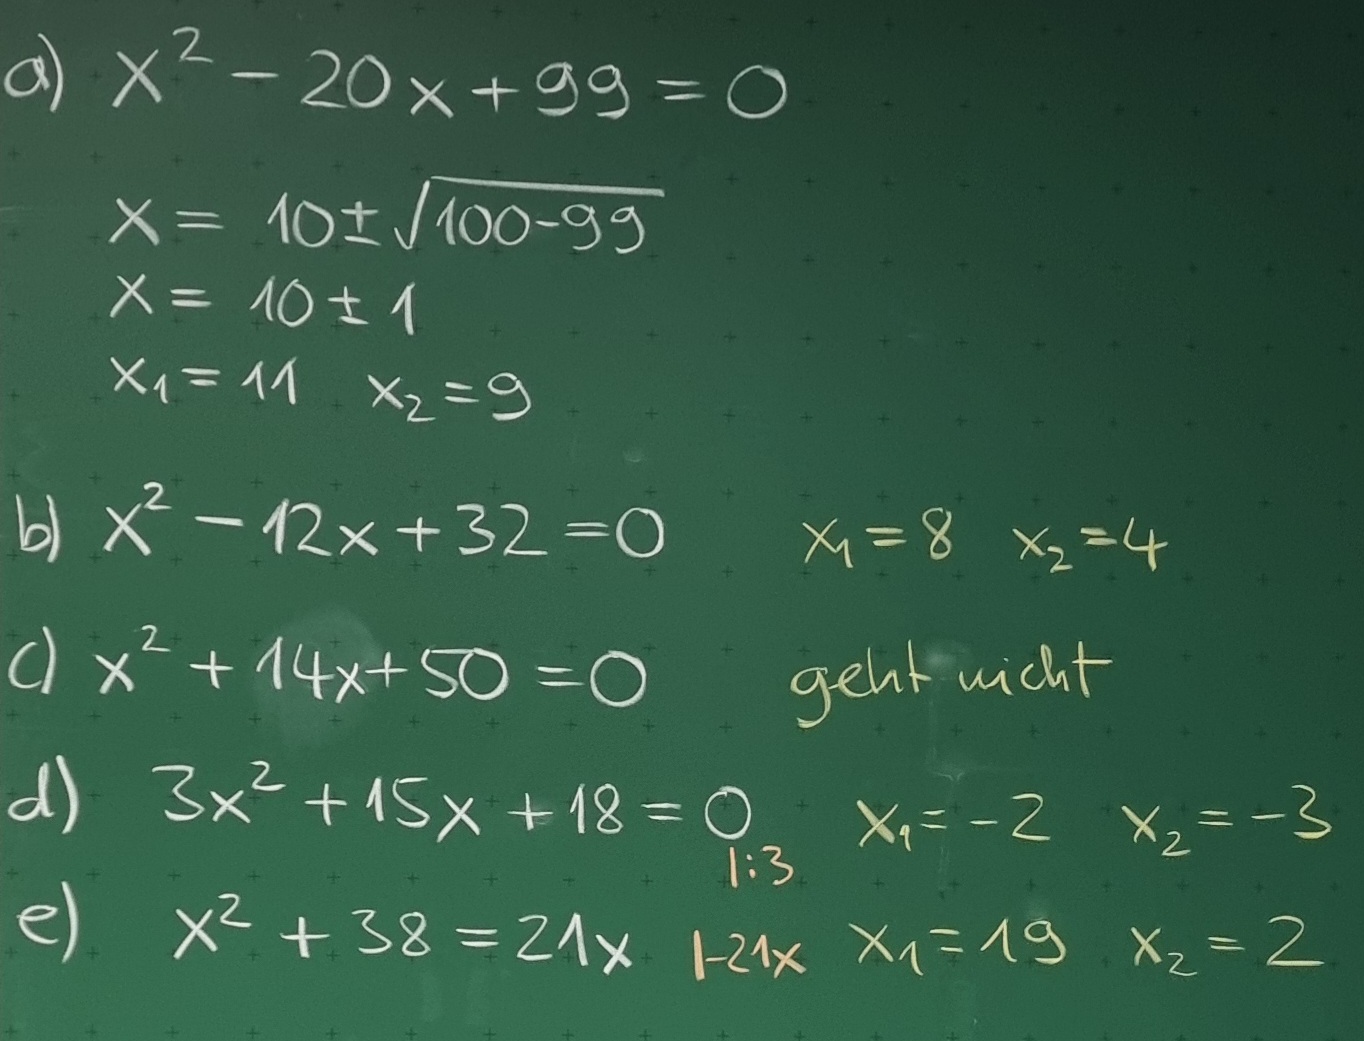 a) x² - 20x + 99 = 0
x = 10 ± √(100-99)
x = 10 ± 1
x₁ = 11 x₂ = 9
b) x² - 12x + 32 = 0 x₁ = 8 x₂ = 4
c) x² + 14x + 50 = 0 geht nicht
d) 3x² + 15x + 18 = 0 |:3 x₁ = -2 x₂ = -3
e) x² + 38 = 21x |-21x x₁ = 19 x₂ = 2